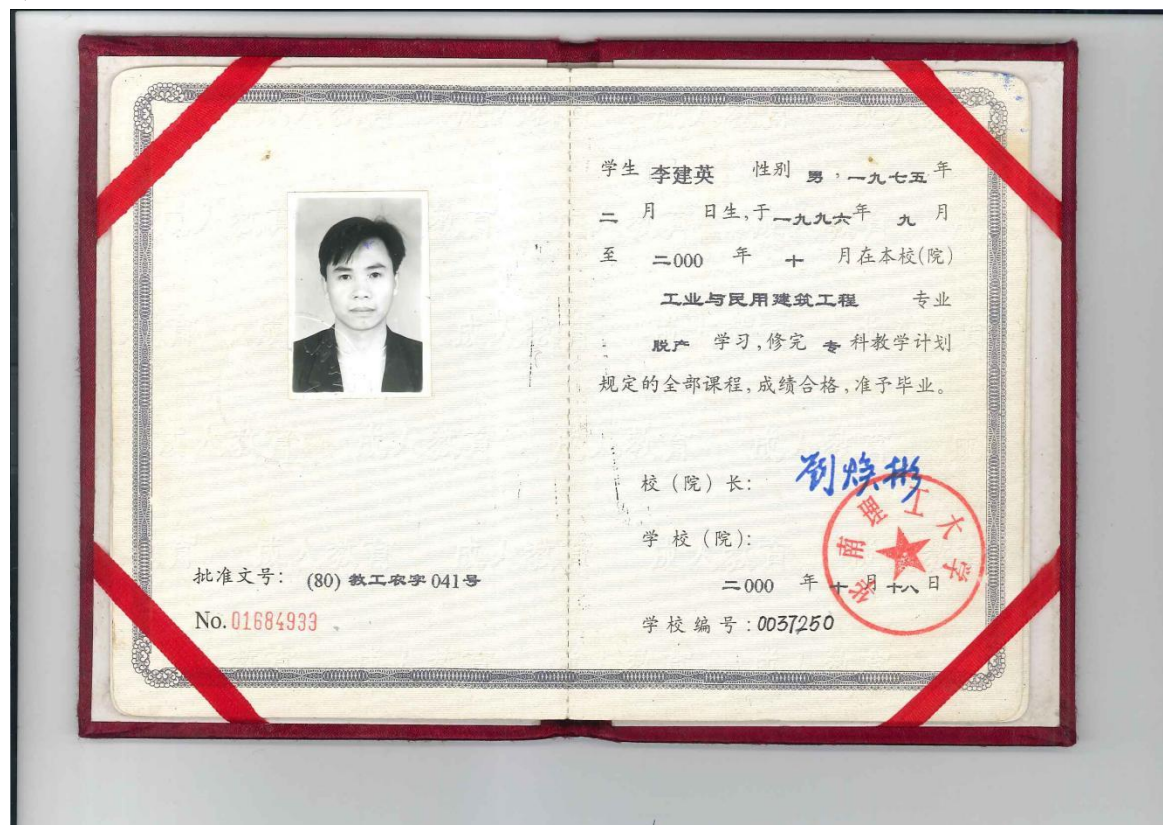 批准文号： (80) 教工农字 041号
No. 01684933
学生 李建英 性别 男，一九七五年
二 月 日生，于一九九六年 九 月
至 二000 年 十 月在本校(院)
工业与民用建筑工程 专业
脱产 学习，修完 专 科教学计划
规定的全部课程，成绩合格，准予毕业。
校（院）长： 刘焕彬
学校（院）：
华南理工大学
二000 年 十 月 十八 日
学校编号：0037250